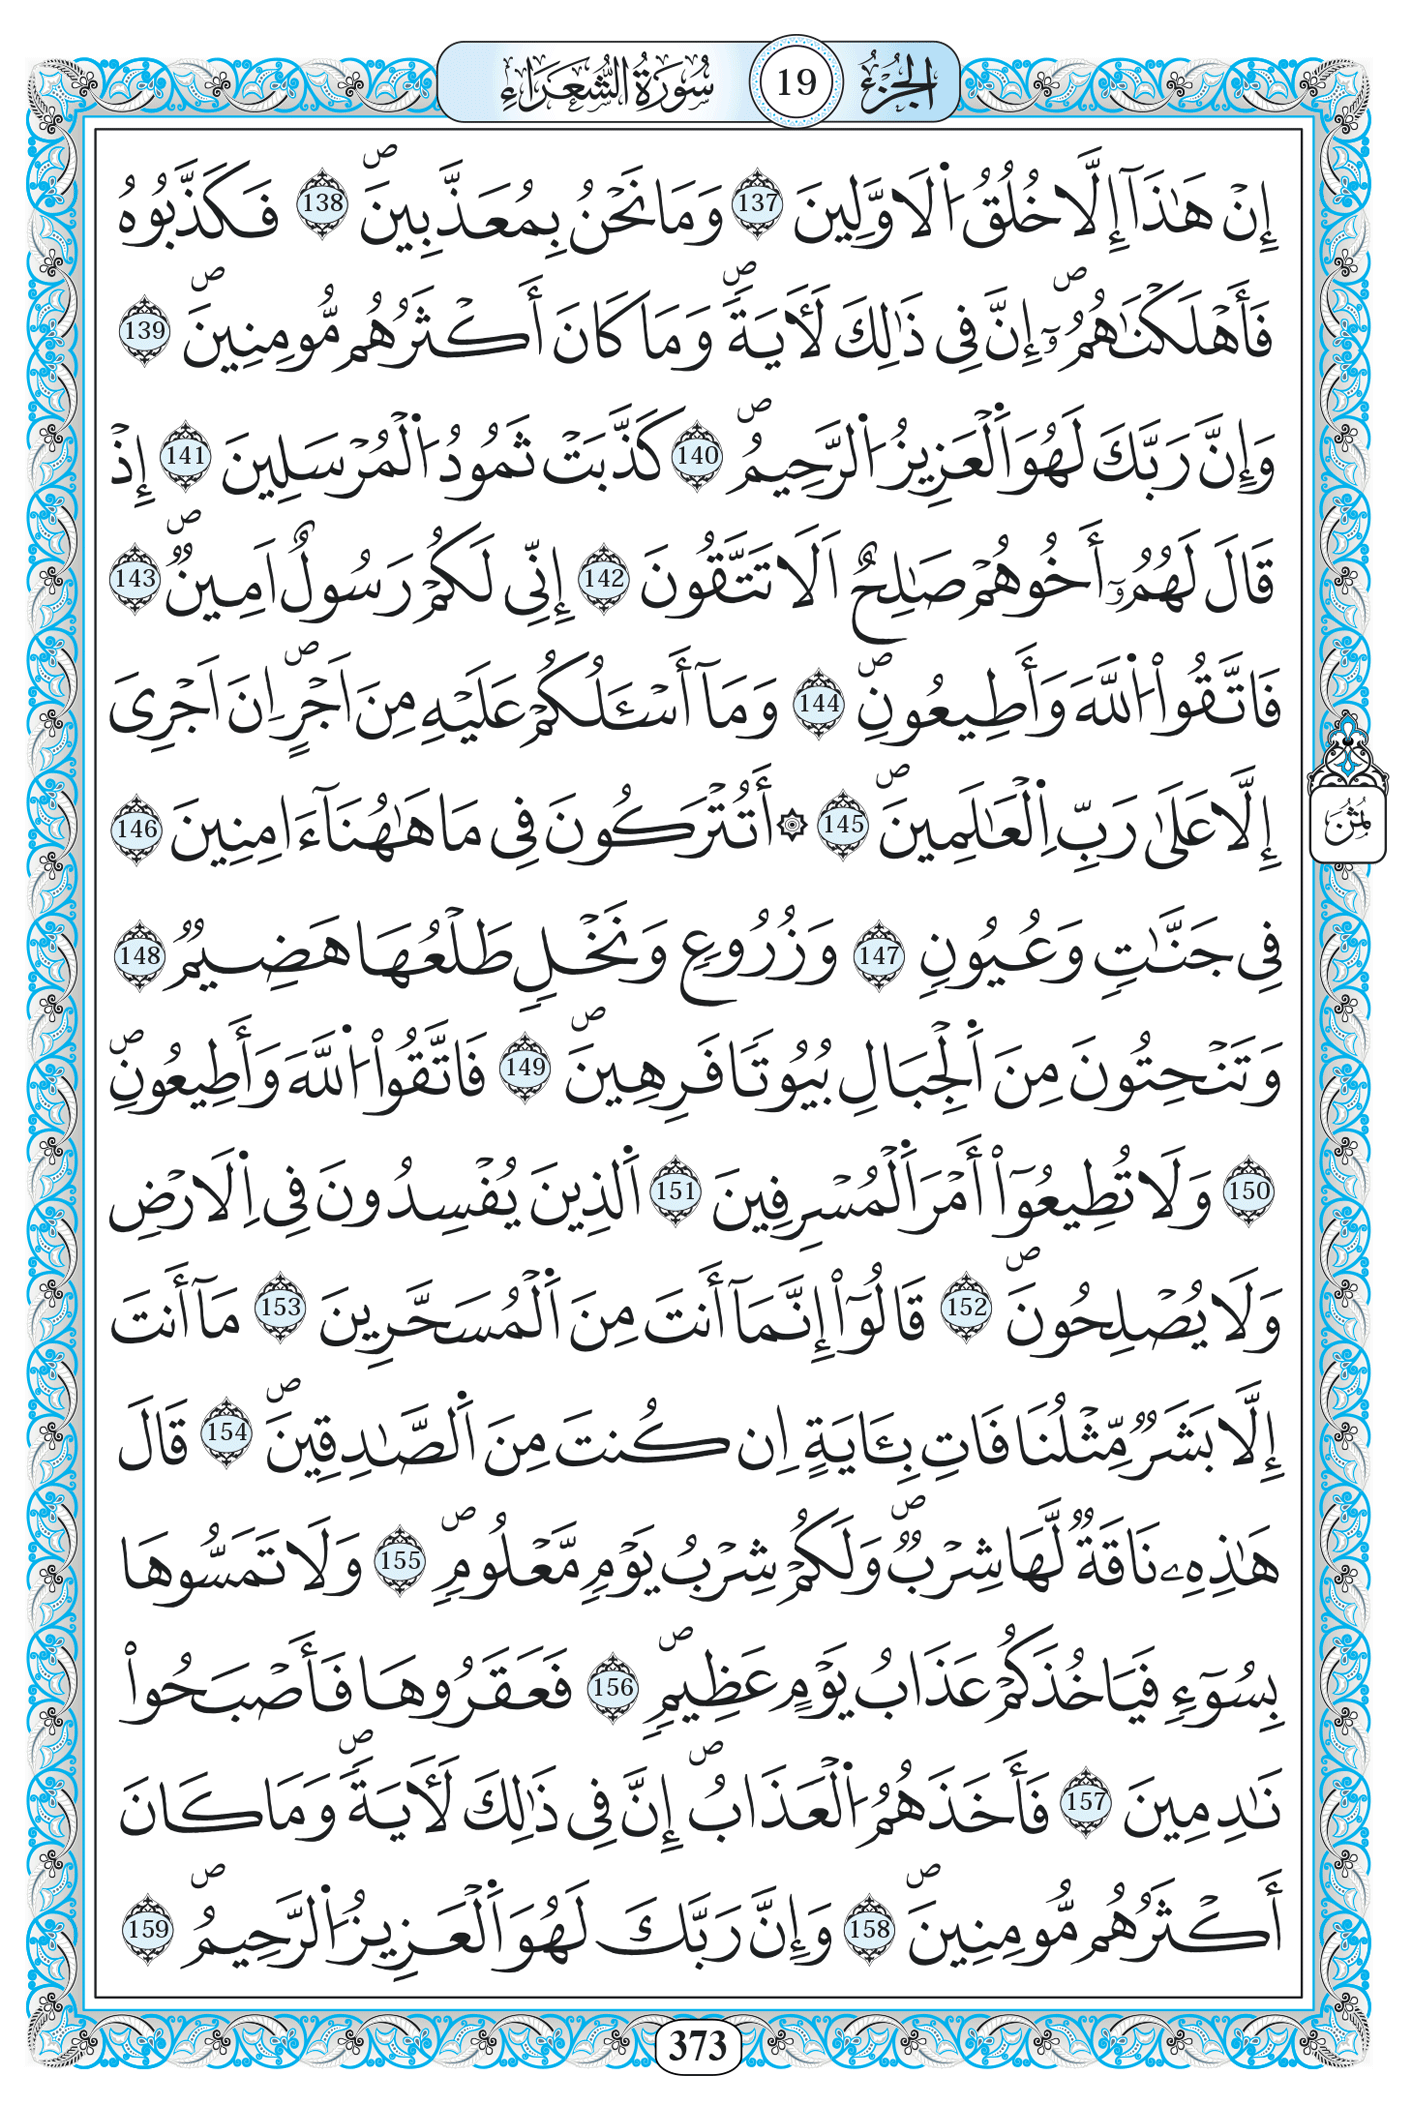 الجزء 19 سورة الشعراء
إِنْ هَٰذَآ إِلَّا خُلُقُ اُ۬لَاوَّلِينَ 137 وَمَا نَحْنُ بِمُعَذَّبِينَۖ 138 فَكَذَّبُوهُ
فَأَهْلَكْنَٰهُمُۥٓۖ إِنَّ فِي ذَٰلِكَ لَأٓيَةَۖ وَمَا كَانَ أَكْثَرُهُم مُّومِنِينَۖ 139
وَإِنَّ رَبَّكَ لَهُوَ اَ۬لْعَزِيزُ اُ۬لرَّحِيمُۖ 140 كَذَّبَتْ ثَمُودُ اُ۬لْمُرْسَلِينَ 141 إِذْ
قَالَ لَهُمُۥٓ أَخُوهُمْ صَٰلِحٌ اَلَا تَتَّقُونَ 142 إِنِّي لَكُمْ رَسُولٌ اَمِينٞۖ 143
فَاتَّقُواْ اُ۬للَّهَ وَأَطِيعُونِۖ 144 وَمَآ أَسْـَٔلُكُمْ عَلَيْهِ مِنَ اَجْرٍۖ اِنَ اَجْرِيَ
إِلَّا عَلَىٰ رَبِّ اِ۬لْعَٰلَمِينَۖ 145 ۞ أَتُتْرَكُونَ فِي مَا هَٰهُنَآ ءَامِنِينَ 146
لِثُمُن
فِي جَنَّٰتٖ وَعُيُونٖ 147 وَزُرُوعٖ وَنَخْلٖ طَلْعُهَا هَضِيمٞ 148
وَتَنْحِتُونَ مِنَ اَ۬لْجِبَالِ بُيُوتاٗ فَرِهِينَۖ 149 فَاتَّقُواْ اُ۬للَّهَ وَأَطِيعُونِۖ
150 وَلَا تُطِيعُوٓاْ أَمْرَ اَ۬لْمُسْرِفِينَ 151 اَ۬لذِينَ يُفْسِدُونَ فِي اِ۬لَارْضِ
وَلَا يُصْلِحُونَۖ 152 قَالُوٓاْ إِنَّمَآ أَنتَ مِنَ اَ۬لْمُسَحَّرِينَ 153 مَآ أَنتَ
إِلَّا بَشَرٞ مِّثْلُنَا فَاتِ بِـَٔايَةٍ اِن كُنتَ مِنَ اَ۬لصَّٰدِقِينَۖ 154 قَالَ
هَٰذِهِۦ نَاقَةٞ لَّهَا شِرْبٞۖ وَلَكُمْ شِرْبُ يَوْمٖ مَّعْلُومٖۖ 155 وَلَا تَمَسُّوهَا
بِسُوٓءٖ فَيَاخُذَكُمْ عَذَابُ يَوْمٍ عَظِيمٖۖ 156 فَعَقَرُوهَا فَأَصْبَحُواْ
نَٰدِمِينَ 157 فَأَخَذَهُمُ اُ۬لْعَذَابُۖ إِنَّ فِي ذَٰلِكَ لَأٓيَةَۖ وَمَا كَانَ
أَكْثَرُهُم مُّومِنِينَۖ 158 وَإِنَّ رَبَّكَ لَهُوَ اَ۬لْعَزِيزُ اُ۬لرَّحِيمُۖ 159
373